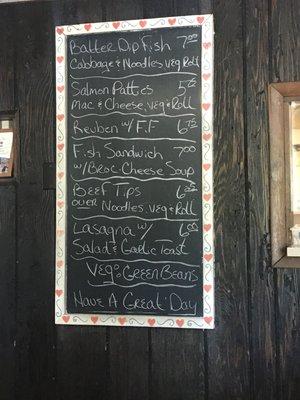 Batter Dip Fish 7.00
Cabbage & Noodles veg Roll
Salmon Patties 5.75
Mac & Cheese, veg & Roll
Reuben w/ F.F 6.75
Fish Sandwich 7.00
w/ Broc. Cheese Soup
Beef Tips
over Noodles, veg & Roll
Lasagna w/
Salad & Garlic Toast
Veg: Green Beans
Have A Great Day